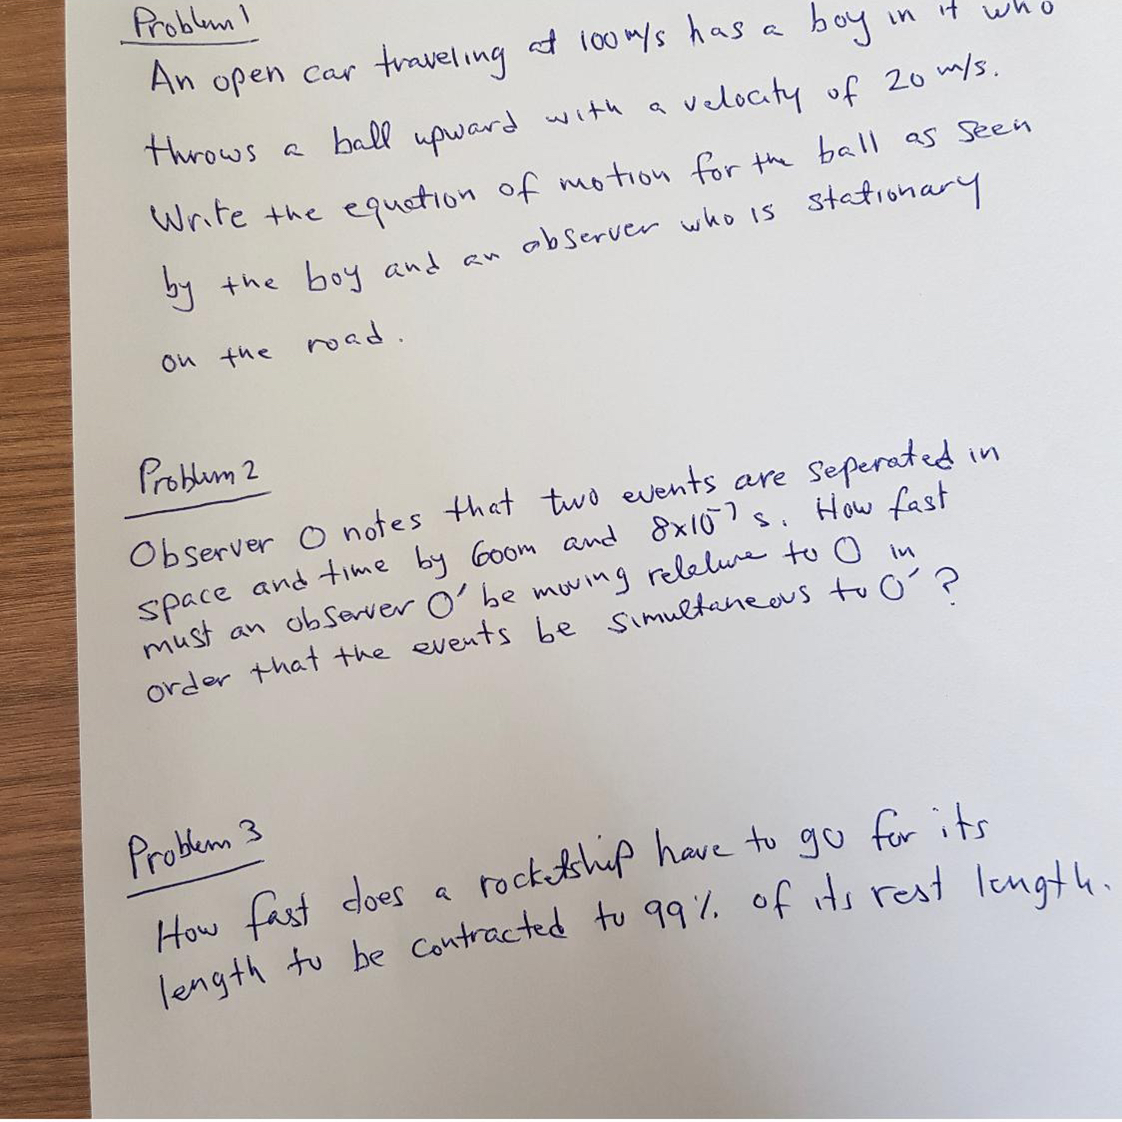 Problem 1
An open car traveling at 100 m/s has a boy in it who
throws a ball upward with a velocity of 20 m/s.
Write the equation of motion for the ball as seen
by the boy and an observer who is stationary
on the road.
Problem 2
Observer O notes that two events are seperated in
space and time by 600m and 8x10⁻⁷ s. How fast
must an observer O' be moving relative to O in
order that the events be simultaneous to O'?
Problem 3
How fast does a rocketship have to go for its
length to be contracted to 99% of its rest length.